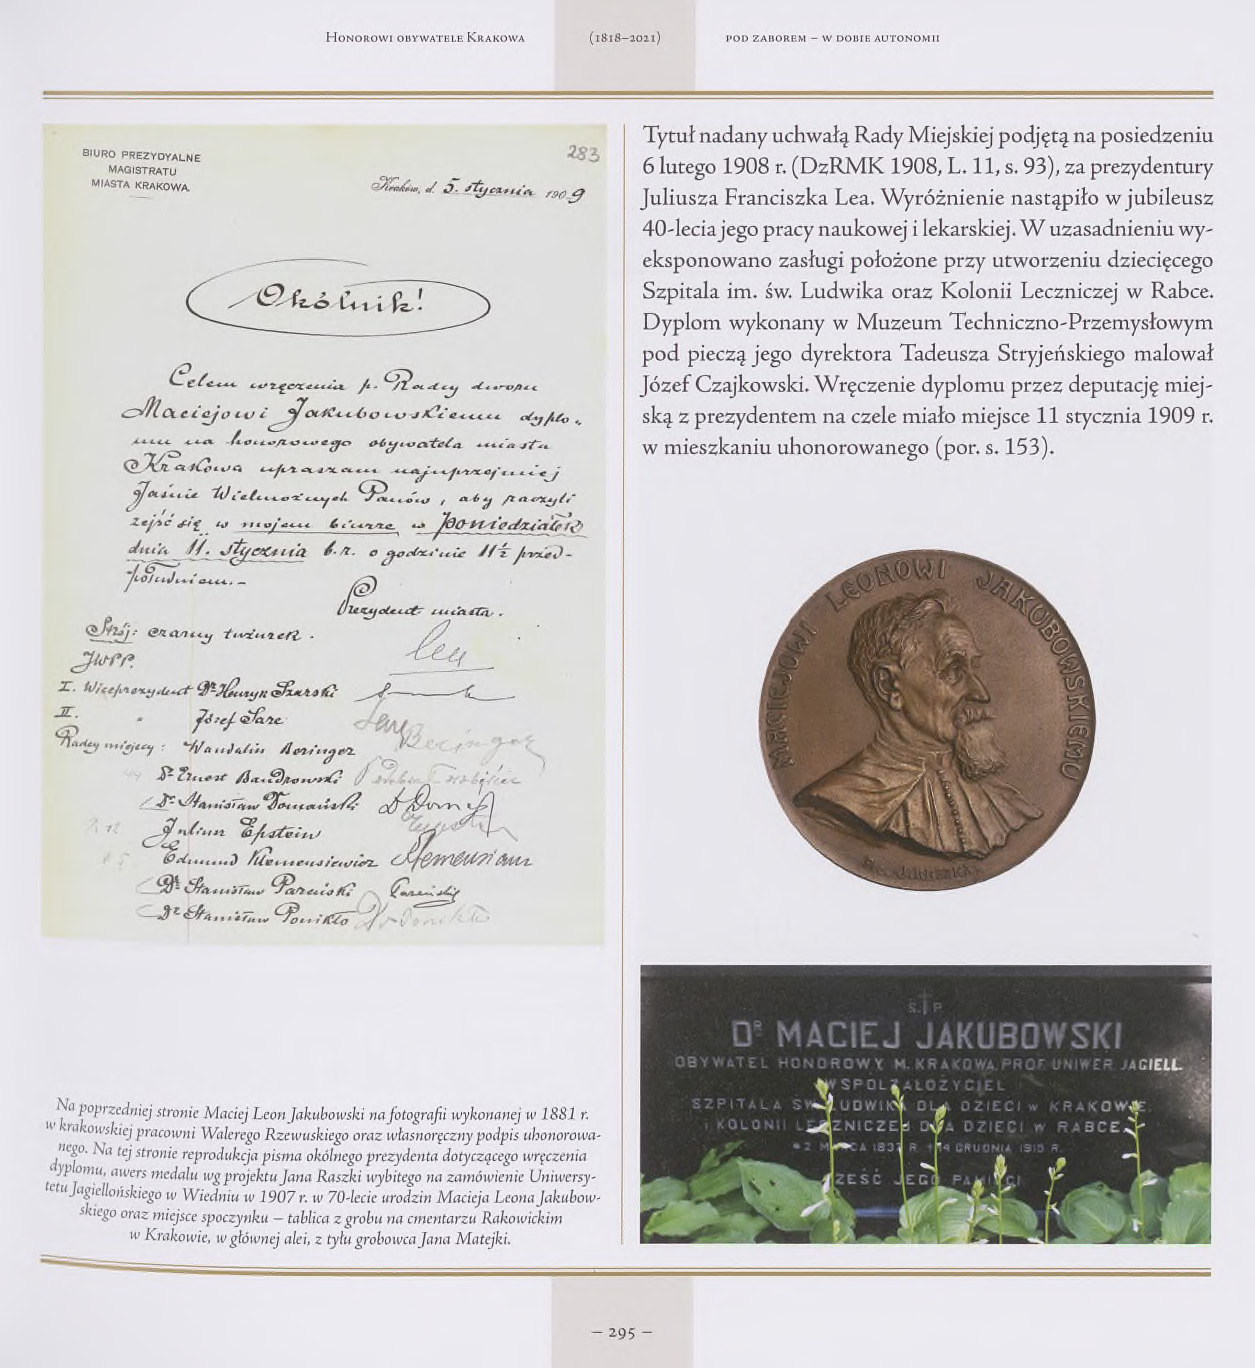 Honorowi obywatele Krakowa
(1818–2021)
pod zaborem – w dobie autonomii
BIURO PREZYDYALNE
MAGISTRATU
MIASTA KRAKOWA.
283
Kraków, d. 5. stycznia 1909
Okólnik!
Celem wręczenia p. Radcy dworu
Maciejowi Jakubowskiemu dyplo-
mu na honorowego obywatela miasta
Krakowa upraszam najuprzejmiej
Jaśnie Wielmożnych Panów, aby raczyli
zejść się w mojem biurze w poniedziałek
dnia 11. stycznia b.r. o godzinie 11½ przed-
południem.-
Prezydent miasta.
Strój: czarny tużurek.
Leo
JWPP.
I. Wiceprezydent Dr Henryk Szarski
II. " Józef Sare Sare
Radcy miejscy: Wandalin Beringer Beringer
Dr Ernest Bandrowski
Dr Stanisław Domański
Juliusz Epstein Epstein
Edmund Klemensiewicz
Dr Stanisław Pareński Pareński
Dr Stanisław Ponikło Dr Ponikło
Na poprzedniej stronie Maciej Leon Jakubowski na fotografii wykonanej w 1881 r.
w krakowskiej pracowni Walerego Rzewuskiego oraz własnoręczny podpis uhonorowa-
nego. Na tej stronie reprodukcja pisma okólnego prezydenta dotyczącego wręczenia
dyplomu, awers medalu wg projektu Jana Raszki wybitego na zamówienie Uniwersy-
tetu Jagiellońskiego w Wiedniu w 1907 r. w 70-lecie urodzin Macieja Leona Jakubow-
skiego oraz miejsce spoczynku – tablica z grobu na cmentarzu Rakowickim
w Krakowie, w głównej alei, z tyłu grobowca Jana Matejki.
Tytuł nadany uchwałą Rady Miejskiej podjętą na posiedzeniu
6 lutego 1908 r. (DzRMK 1908, L. 11, s. 93), za prezydentury
Juliusza Franciszka Lea. Wyróżnienie nastąpiło w jubileusz
40-lecia jego pracy naukowej i lekarskiej. W uzasadnieniu wy-
eksponowano zasługi położone przy utworzeniu dziecięcego
Szpitala im. św. Ludwika oraz Kolonii Leczniczej w Rabce.
Dyplom wykonany w Muzeum Techniczno-Przemysłowym
pod pieczą jego dyrektora Tadeusza Stryjeńskiego malował
Józef Czajkowski. Wręczenie dyplomu przez deputację miej-
ską z prezydentem na czele miało miejsce 11 stycznia 1909 r.
w mieszkaniu uhonorowanego (por. s. 153).
MACIEJOWI LEONOWI JAKUBOWSKIEMU
Ś. P.
DR MACIEJ JAKUBOWSKI
OBYWATEL HONOROWY M. KRAKOWA, PROF. UNIWER. JAGIELL.
WSPÓŁZAŁOŻYCIEL
SZPITALA ŚW. LUDWIKA DLA DZIECI W KRAKOWIE,
I KOLONII LECZNICZEJ DLA DZIECI W RABCE.
CZEŚĆ JEGO PAMIĘCI
– 295 –